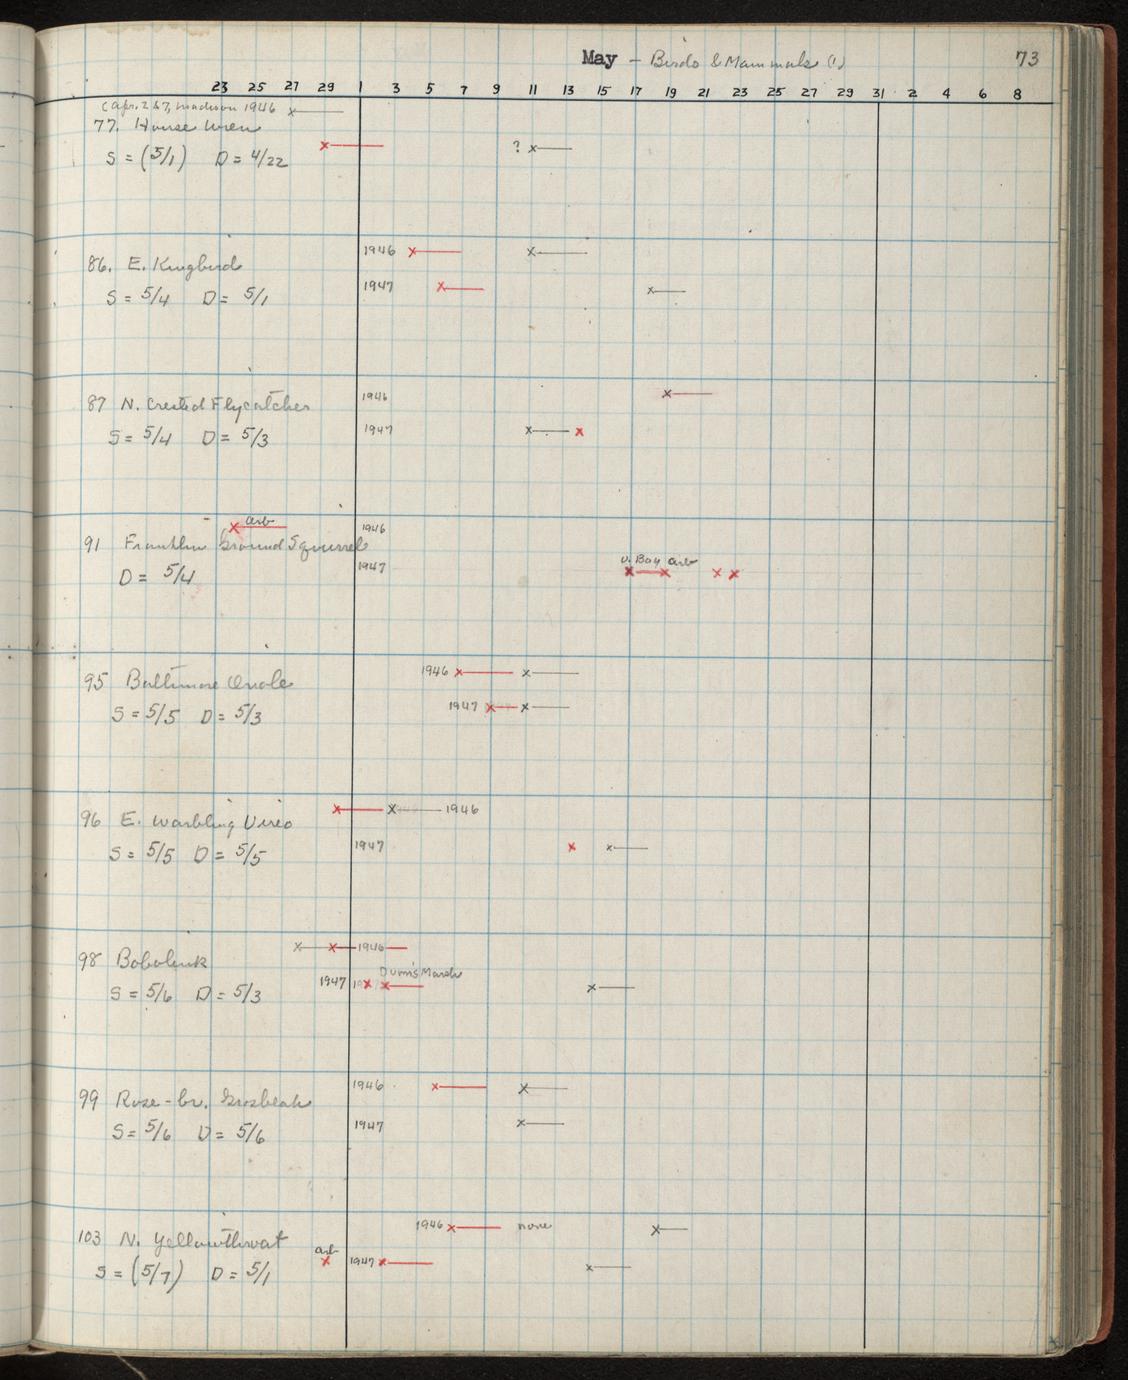 May - Birds & Mammals (1) 73
23 25 27 29 1 3 5 7 9 11 13 15 17 19 21 23 25 27 29 31 2 4 6 8
(Apr. 27, Madison 1946 x
77. House Wren
x ? x
S = (5/1) D = 4/22
1946 x x
86. E. Kingbird
1947 x x
S = 5/4 D = 5/1
1946 x
87 N. Crested Flycatcher
1947 x x
S = 5/4 D = 5/3
x arb 1946
91 Franklin Ground Squirrel
U. Bay arb
1947 x x x x
D = 5/4
1946 x x
95 Baltimore Oriole
1947 x x
S = 5/5 D = 5/3
x x 1946
96 E. Warbling Vireo
1947 x x
S = 5/5 D = 5/5
x x 1946
98 Bobolink
Dunn's Marsh
1947 x x x
S = 5/6 D = 5/3
1946 x x
99 Rose-br. Grosbeak
1947 x
S = 5/6 D = 5/6
1946 x none x
103 N. Yellowthroat
arb
x 1947 x x
S = (5/7) D = 5/1